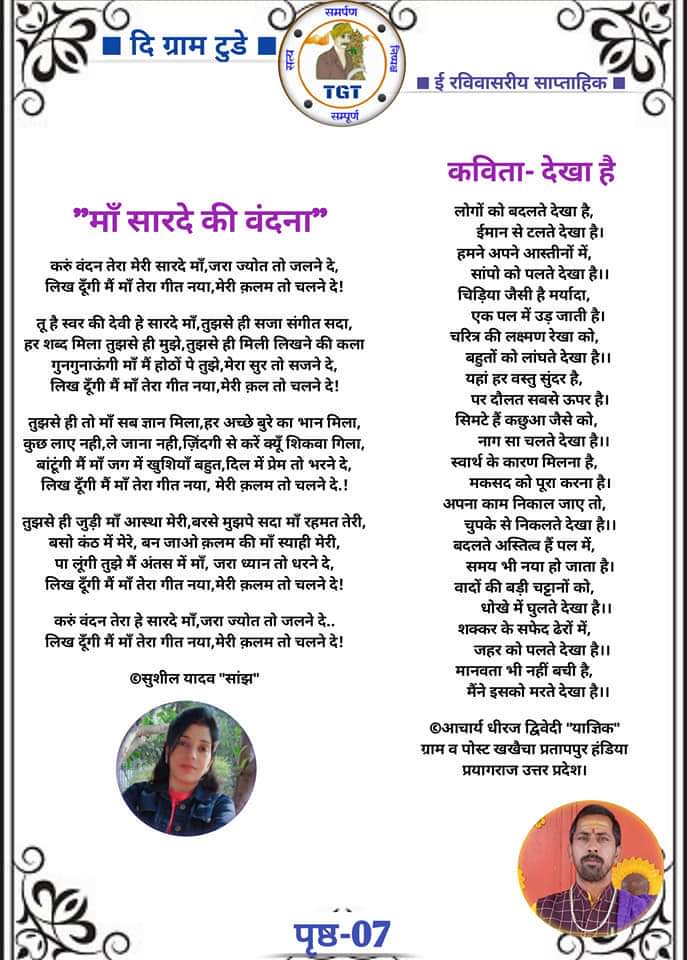 ■ दि ग्राम टुडे ■
समर्पण
सत्य
निष्पक्ष
TGT
सम्पूर्ण
■ ई रविवासरीय साप्ताहिक ■
”माँ सारदे की वंदना”
करुं वंदन तेरा मेरी सारदे माँ,जरा ज्योत तो जलने दे,
लिख दूँगी मैं माँ तेरा गीत नया,मेरी क़लम तो चलने दे!
तू है स्वर की देवी हे सारदे माँ,तुझसे ही सजा संगीत सदा,
हर शब्द मिला तुझसे ही मुझे,तुझसे ही मिली लिखने की कला
गुनगुनाऊंगी माँ मैं होठों पे तुझे,मेरा सुर तो सजने दे,
लिख दूँगी मैं माँ तेरा गीत नया,मेरी क़ल तो चलने दे!
तुझसे ही तो माँ सब ज्ञान मिला,हर अच्छे बुरे का भान मिला,
कुछ लाए नही,ले जाना नही,ज़िंदगी से करें क्यूँ शिकवा गिला,
बांटूंगी मैं माँ जग में खुशियाँ बहुत,दिल में प्रेम तो भरने दे,
लिख दूँगी मैं माँ तेरा गीत नया, मेरी क़लम तो चलने दे.!
तुझसे ही जुड़ी माँ आस्था मेरी,बरसे मुझपे सदा माँ रहमत तेरी,
बसो कंठ में मेरे, बन जाओ क़लम की माँ स्याही मेरी,
पा लूंगी तुझे मैं अंतस में माँ, जरा ध्यान तो धरने दे,
लिख दूँगी मैं माँ तेरा गीत नया,मेरी क़लम तो चलने दे!
करुं वंदन तेरा हे सारदे माँ,जरा ज्योत तो जलने दे..
लिख दूँगी मैं माँ तेरा गीत नया,मेरी क़लम तो चलने दे!
©सुशील यादव "सांझ"
कविता- देखा है
लोगों को बदलते देखा है,
ईमान से टलते देखा है।
हमने अपने आस्तीनों में,
सांपो को पलते देखा है।।
चिड़िया जैसी है मर्यादा,
एक पल में उड़ जाती है।
चरित्र की लक्ष्मण रेखा को,
बहुतों को लांघते देखा है।।
यहां हर वस्तु सुंदर है,
पर दौलत सबसे ऊपर है।
सिमटे हैं कछुआ जैसे को,
नाग सा चलते देखा है।।
स्वार्थ के कारण मिलना है,
मकसद को पूरा करना है।
अपना काम निकाल जाए तो,
चुपके से निकलते देखा है।।
बदलते अस्तित्व हैं पल में,
समय भी नया हो जाता है।
वादों की बड़ी चट्टानों को,
धोखे में घुलते देखा है।।
शक्कर के सफेद ढेरों में,
जहर को पलते देखा है।।
मानवता भी नहीं बची है,
मैंने इसको मरते देखा है।।
©आचार्य धीरज द्विवेदी "याज्ञिक"
ग्राम व पोस्ट खखैचा प्रतापपुर हंडिया
प्रयागराज उत्तर प्रदेश।
पृष्ठ-07